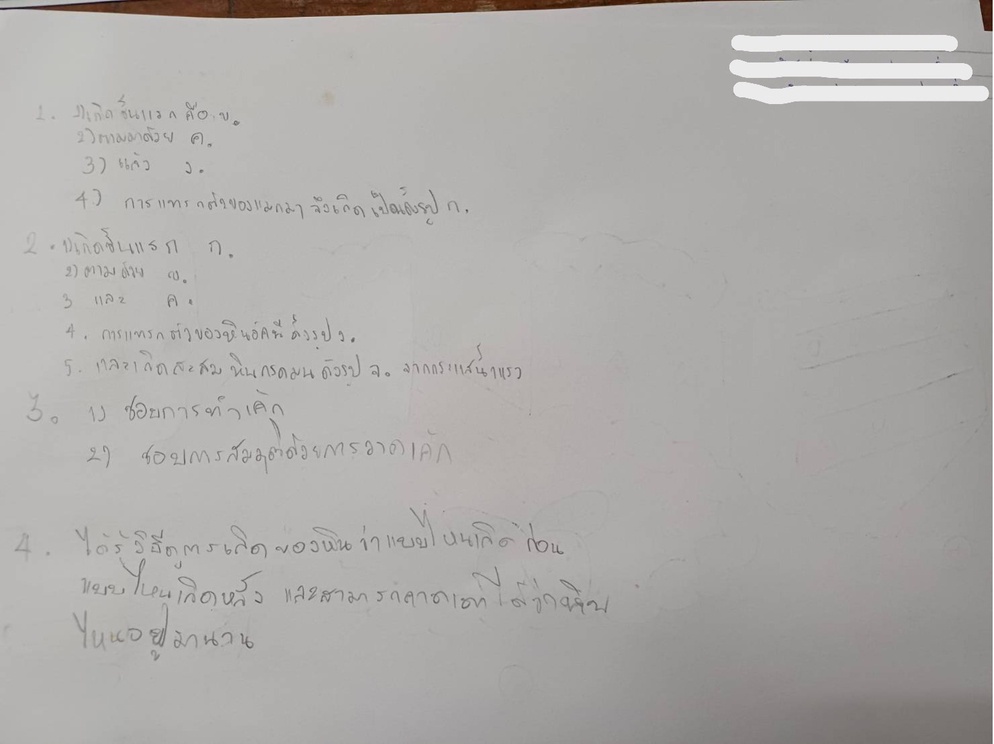 1. 1) เกิดชั้นแรก คือ ข.
2) ตามมาด้วย ค.
3) แล้ว ง.
4) การแทรกตัวของแมกมา จึงเกิด เป็นดังรูป ก.
2. 1) เกิดชั้นแรก ก.
2) ตามด้วย ข.
3 และ ค.
4. การแทรกตัวของหินอัคนี ดังรูป ง.
5. และเกิดสะสม หินกรวดมน ดังรูป จ. จากกระแสน้ำแรง
3. 1) ชอบการทำเค้ก
2) ชอบการสมมุติด้วยการวาดเค้ก
4. ได้รู้วิธีดูการเกิดของหินว่าแบบไหนเกิดก่อน
แบบไหนเกิดหลัง และสามารถคาดเดาได้ว่าหิน
ไหนอยู่มานาน